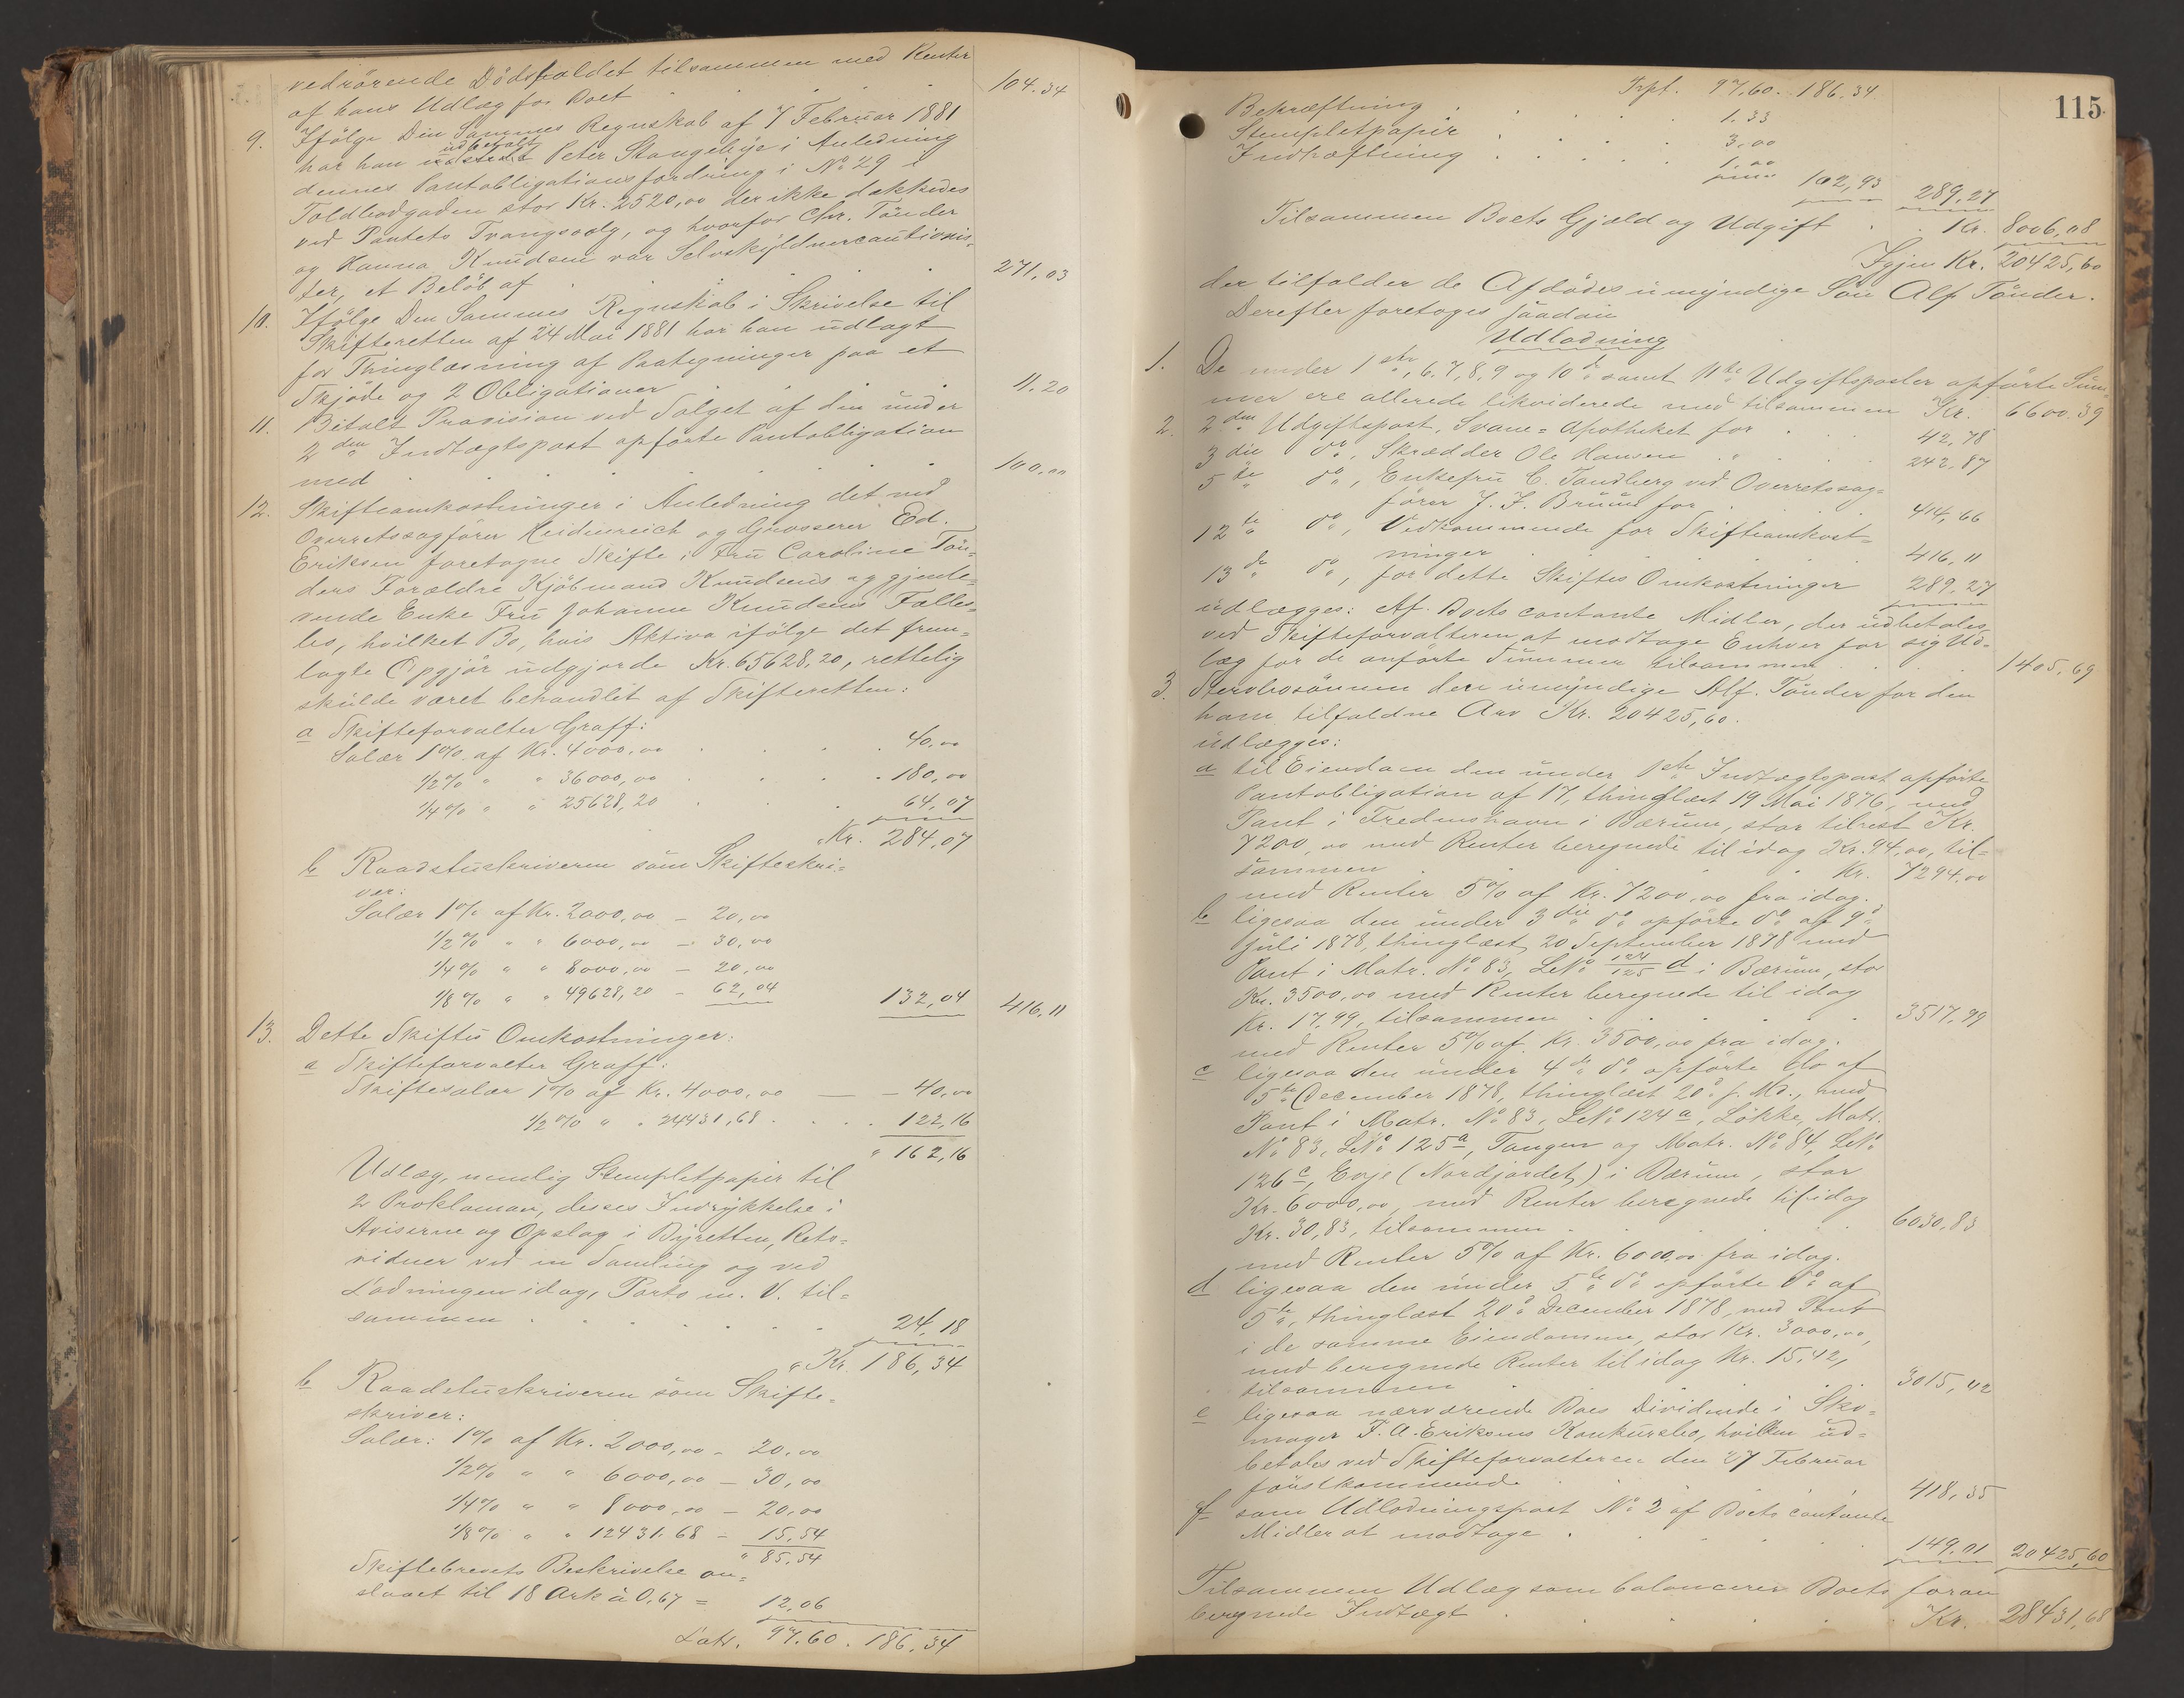 vedrörende Dödsfaldet tilsammen med Renter
af hans Udlæg for Boet . . . . 104.34
9. Ifölge Den Sammes Regnskab af 7 Februar 1881
har han udbetalt Peter Stangebye i Anledning
dennes Pantobligationsfordring i No 29
Toldbodgaden stor Kr. 2520,00 der ikke dækkedes
ved Pantets Tvangssalg, og hvorfor Chr. Tönder
og Hanna Knudsen var Selvskyldnercautionis-
ter, et Belöb af . . . . 271,03
10. Ifölge Den Sammes Regnskab i Skrivelse til
Skifteretten af 24 Mai 1881 har han udlagt
for Thinglæsning af Paategninger paa et
Skjöde og 2 Obligationer . . . 11.20
11. Betalt Provision ved Salget af den under
2den Indtægtspost opförte Pantobligation
med . . . . . 100,00
12. Skifteomkostninger i Anledning det ved
Overretssagförer Heidenreich og Grosserer Ed.
Eriksen foretagne Skifte i Fru Caroline Tön-
ders Forældre Kjöbmand Knudsens og gjenle-
vende Enke Fru Johanne Knudsens Fælles-
bo, hvilket Bo, hvis Aktiva ifölge det frem-
lagte Opgjör udgjorde Kr. 65628,20, rettelig
skulde været behandlet af Skifteretten:
a Skifteforvalter Graff:
Salær 1% af Kr. 4000,00 . . . . 40,00
1/2% " " 36000,00 . . . . 180,00
1/4% " " 25628,20 . . . 64,07
Kr. 284,07
b Raadstueskriveren som Skifteskri-
ver:
Salær 1% af Kr. 2000,00 - 20,00
1/2% " " 6000,00 - 30,00
1/4% " " 8000,00 - 20,00
1/8% " " 49628,20 - 62,04 132,04 416,11
13. Dette Skiftes Omkostninger:
a Skifteforvalter Graff:
Skiftesalær 1% af Kr. 4000,00 — - 40,00
1/2% " " 24431,68 . . . . 122,16
" 162,16
Udlæg, nemlig Stempletpapir til
2 Proklamaer, desses Indrykkelse i
Aviserne og Opslag i Byretten, Rets-
vidner ved en Samling og ved
Lodningen idag, Porto m. V. til-
sammen . . . . . . 24,18
" Kr. 186,34
b Raadstueskriveren som Skifte-
skriver:
Salær: 1% af Kr. 2000,00 - 20,00
1/2% " " 6000,00 - 30,00
1/4% " " 8000,00 - 20,00
1/8% " " 12431.68 - 15,54
" 85,54
Skiftebrevets Beskrivelse an-
slaaet til 18 Ark à 0,67 = 12,06
Lats. 97,60. 186,34
115
Trpt. 97,60. 186,34
Bekræftning . . . . 1,33
Stempletpapir . . . . 3,00
Indhæftning . . . . 1,00
102,93 289,27
Tilsammen Boets Gjæld og Udgift . . Kr. 8006,08
Igjen Kr. 20425,60
der tilfalder de Afdödes umyndige Sön Alf Tönder.
Derefter foretoges saadan
Udlodning
1. De under 1ste, 6. 7, 8, 9 og 10de samt 11te Udgiftsposter opförte Sum-
mer ere allerede likviderede med tilsammen Kr. 6600,39
2. 2den Udgiftspost, Svane-Apotheket for . . 42,78
3die do, Skrædder Ole Hansen " . . 242,87
5te do, Enkefru C. Sandberg ved Overretssag-
förer J. F. Bruun for . . . 414,66
12te do, Vedkommende for Skifteomkost-
ninger . . . . . 416,11
13de do, for dette Skiftes Omkostninger 289,27
udlægges: Af Boets contante Midler, der udbetales
ved Skifteforvalteren at modtage Enhver for sig Ud-
læg for de anförte Summer tilsammen . . . 1405,69
3. Stervbosönnen den umyndige Alf. Tönder for den
ham tilfaldne Arv Kr. 20425,60.
udlægges:
a til Eiendom den under 1ste Indtægtspost opförte
Pantobligation af 17, thinglæst 19 Mai 1876, med
Pant i Fredenshavn i Bærum, stor tilrest Kr.
7200,00 med Renter beregnede til idag Kr. 94,00, til-
sammen . . . . . Kr. 7294,00
med Renter 5% af Kr. 7200,00 fra idag.
b ligesaa den under 3die do opförte do af 9de
Juli 1878, thinglæst 20 September 1878 med
Pant i Matr. No 83, LNo 124/125 d i Bærum, stor
Kr. 3500,00 med Renter beregnede til idag
Kr. 17,99, tilsammen . . . . . 3517,99
med Renter 5% af Kr. 3500,00 fra idag.
c ligesaa den under 4de do opförte do af
5te December 1878, thinglæst 20de s. Md., med
Pant i Matr. No 83, LNo 124 a, Lökke, Matr.
No 83, LNo 125 a, Tangen og Matr. No 84, LNo
126 c, Evje (Nordjordet) i Bærum, stor
Kr. 6000,00 med Renter beregnede til idag
Kr. 30,83, tilsammen . . . . 6030,83
med Renter 5% af Kr. 6000,00 fra idag.
d ligesaa den under 5te do opförte do af
5te, thinglæst 20de December 1878, med Pant
i de samme Eiendomme, stor Kr. 3000,00,
med beregnede Renter til idag Kr. 15,42,
tilsammen . . . . . 3015,42
e ligesaa nærværende Boes Dividende i Sko-
mager F. A. Eriksens Konkursbo, hvilken ud-
betales ved Skifteforvalteren den 27 Februar
förstkommende . . . . . 418,35
f som Udlodningspost No 2 af Boets contante
Midler at modtage . . . . 149,01 20425,60
Tilsammen Udlæg som balancerer Boets foran
beregnede Indtægt . . . . . Kr. 28431,68